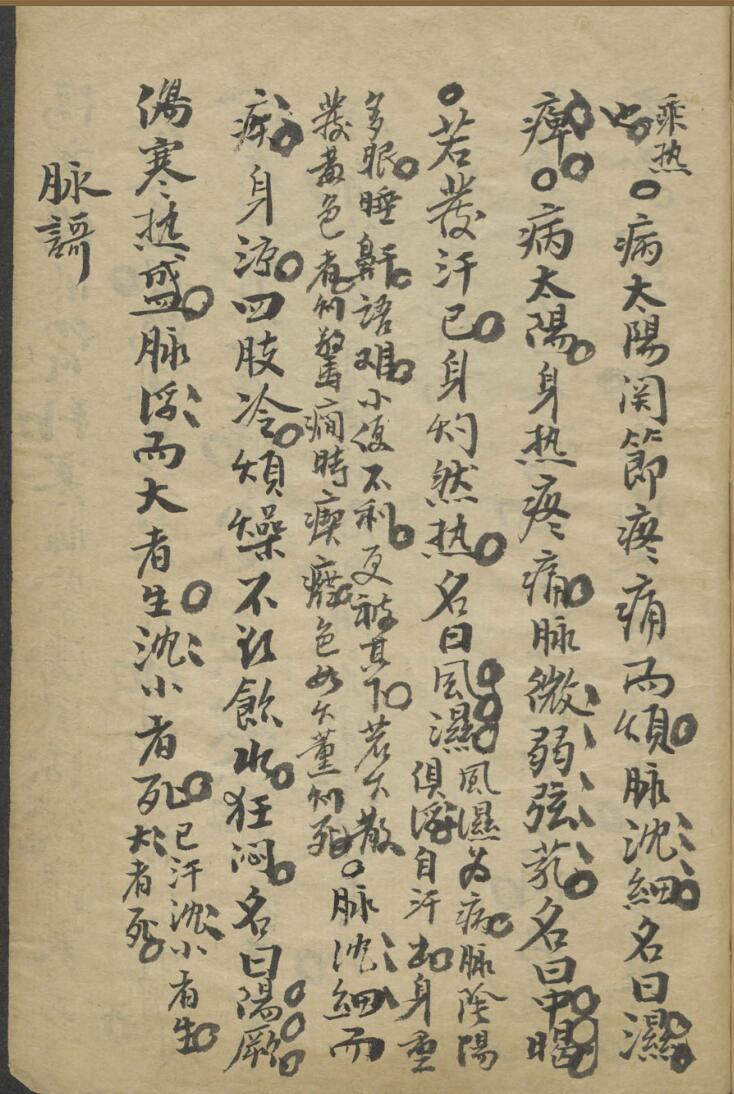 乘热
也○病太陽関節疼痛而煩脉沈細名曰濕
痺○病太陽身热疼痛脉微弱弦芤名曰中暍
○若發汗已身灼然热名曰風濕
風濕为病脉陰陽
俱浮自汗出身重
多眠睡鼻干語难小便不利更被其下若
發黃色者則驚癇時瘈瘲色如熏則死○脉沈細而
疾身凉四肢冷煩燥不欲飲水狂悶名曰陽厥
傷寒热盛脉浮而大者生沈小者死
已汗沈小者生
大者死
脉